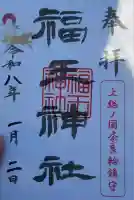 奉拝
上総ノ国奈良輪鎮守
福王神社
福王神社
令和八年
一月二日